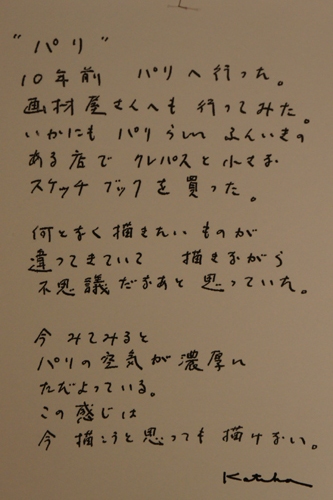 "パリ"
10年前 パリへ行った。
画材屋さんへも 行ってみた。
いかにも パリらしい ふんいきの
ある店で クレパスと小さな
スケッチブックを買った。
何となく描きたいものが
違ってきていて 描きながら
不思議だなあと思っていた。
今 みてみると
パリの空気が濃厚に
ただよっている。
この感じは
今 描こうと思っても描けない。